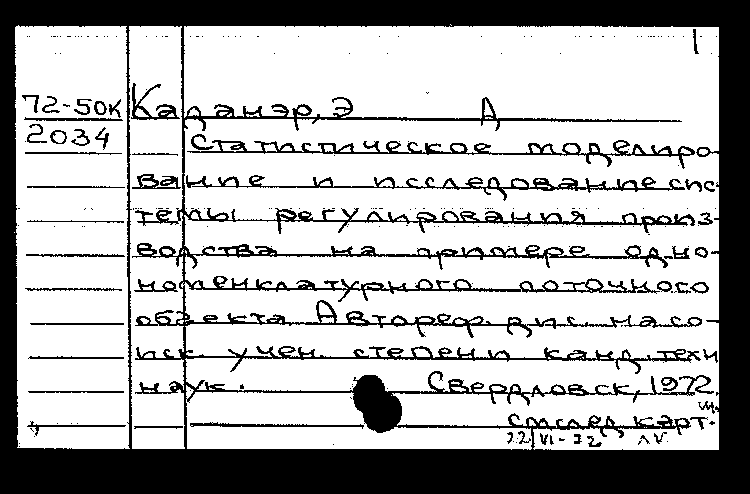 72-50к Каданэр, Э А
2034 Статистическое моделиро-
вание и исследование сис-
темы регулирования произ-
водства на примере одно-
номенклатурного поточного
объекта Автореф. дис. на со-
иск. учен. степени канд. техн
наук. Свердловск, 1972.
см след карт.
22/VI-72